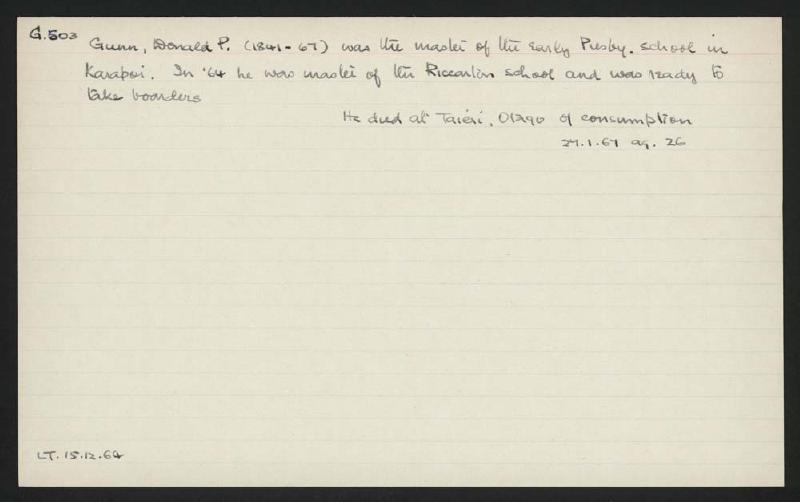 G.503
Gunn, Donald P. (1841-67) was the master of the early Presby. school in
Kaiapoi. In '64 he was master of the Riccarton school and was ready to
take boarders
He died at Taieri, Otago of consumption
27.1.67 ag. 26
LT. 15.12.64